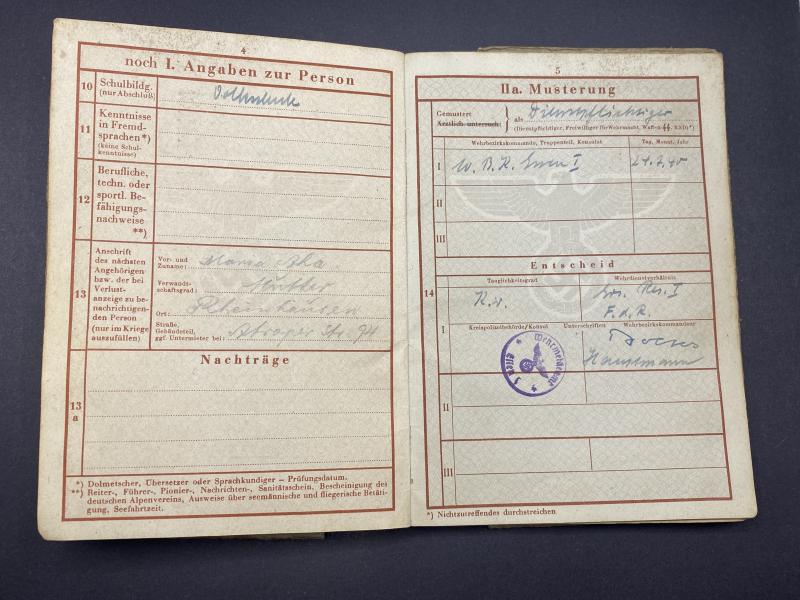 4
noch I. Angaben zur Person
10 Schulbildg.
(nur Abschluß)
11 Kenntnisse
in Fremd-
sprachen*)
(keine Schul-
kenntnisse)
12 Berufliche,
techn. oder
sportl. Be-
fähigungs-
nachweise
**)
13 Anschrift
des nächsten
Angehörigen
bzw. der bei
Verlust-
anzeige zu be-
nachrichtigen-
den Person
(nur im Kriege
auszufüllen)
Vor- und
Zuname: Maria
Verwandt-
schaftsgrad: Mutter
Ort: Rheinhausen
Straße,
Gebäudeteil,
ggf. Untermieter bei: Str. 94
Nachträge
13
a
*) Dolmetscher, Übersetzer oder Sprachkundiger – Prüfungsdatum.
**) Reiter-, Führer-, Pionier-, Nachrichten-, Sanitätsschein, Bescheinigung des
deutschen Alpenvereins, Ausweise über seemännische und fliegerische Betäti-
gung, Seefahrtzeit.
5
IIa. Musterung
Gemustert
Ärztlich untersucht: als Dienstpflichtiger
(Dienstpflichtiger, Freiwilliger für Wehrmacht, Waffen-SS, RAD*)
Wehrbezirkskommando, Truppenteil, Konsulat Tag, Monat, Jahr
I W. B. K. I
II
III
Entscheid
14
Tauglichkeitsgrad Wehrdienstverhältnis
I k.v. Ers. Res. I
F.d.R.
Kreispolizeibehörde/Konsul Unterschriften Wehrbezirkskommandeur
Hauptmann
Wehrmeldeamt
II
III
*) Nichtzutreffendes durchstreichen